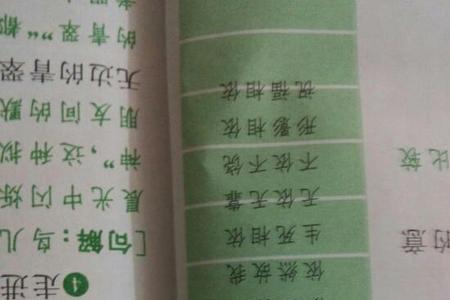 ❹走进
[句解：鸟儿
晨光中闪烁
神”，这种拟
朋友间的默
无边的青翠
的青翠”“都
依然故我
生死相依
无依无靠
不依不饶
形影相依
祸福相依
的意
比较